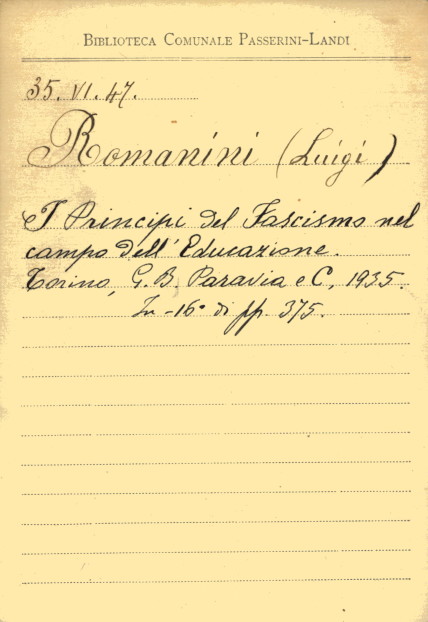 BIBLIOTECA COMUNALE PASSERINI-LANDI
35. VI. 47.
Romanini (Luigi)
I Principi del Fascismo nel
campo dell'Educazione.
Torino, G. B. Paravia e C, 1935.
In-16° di pp. 375.